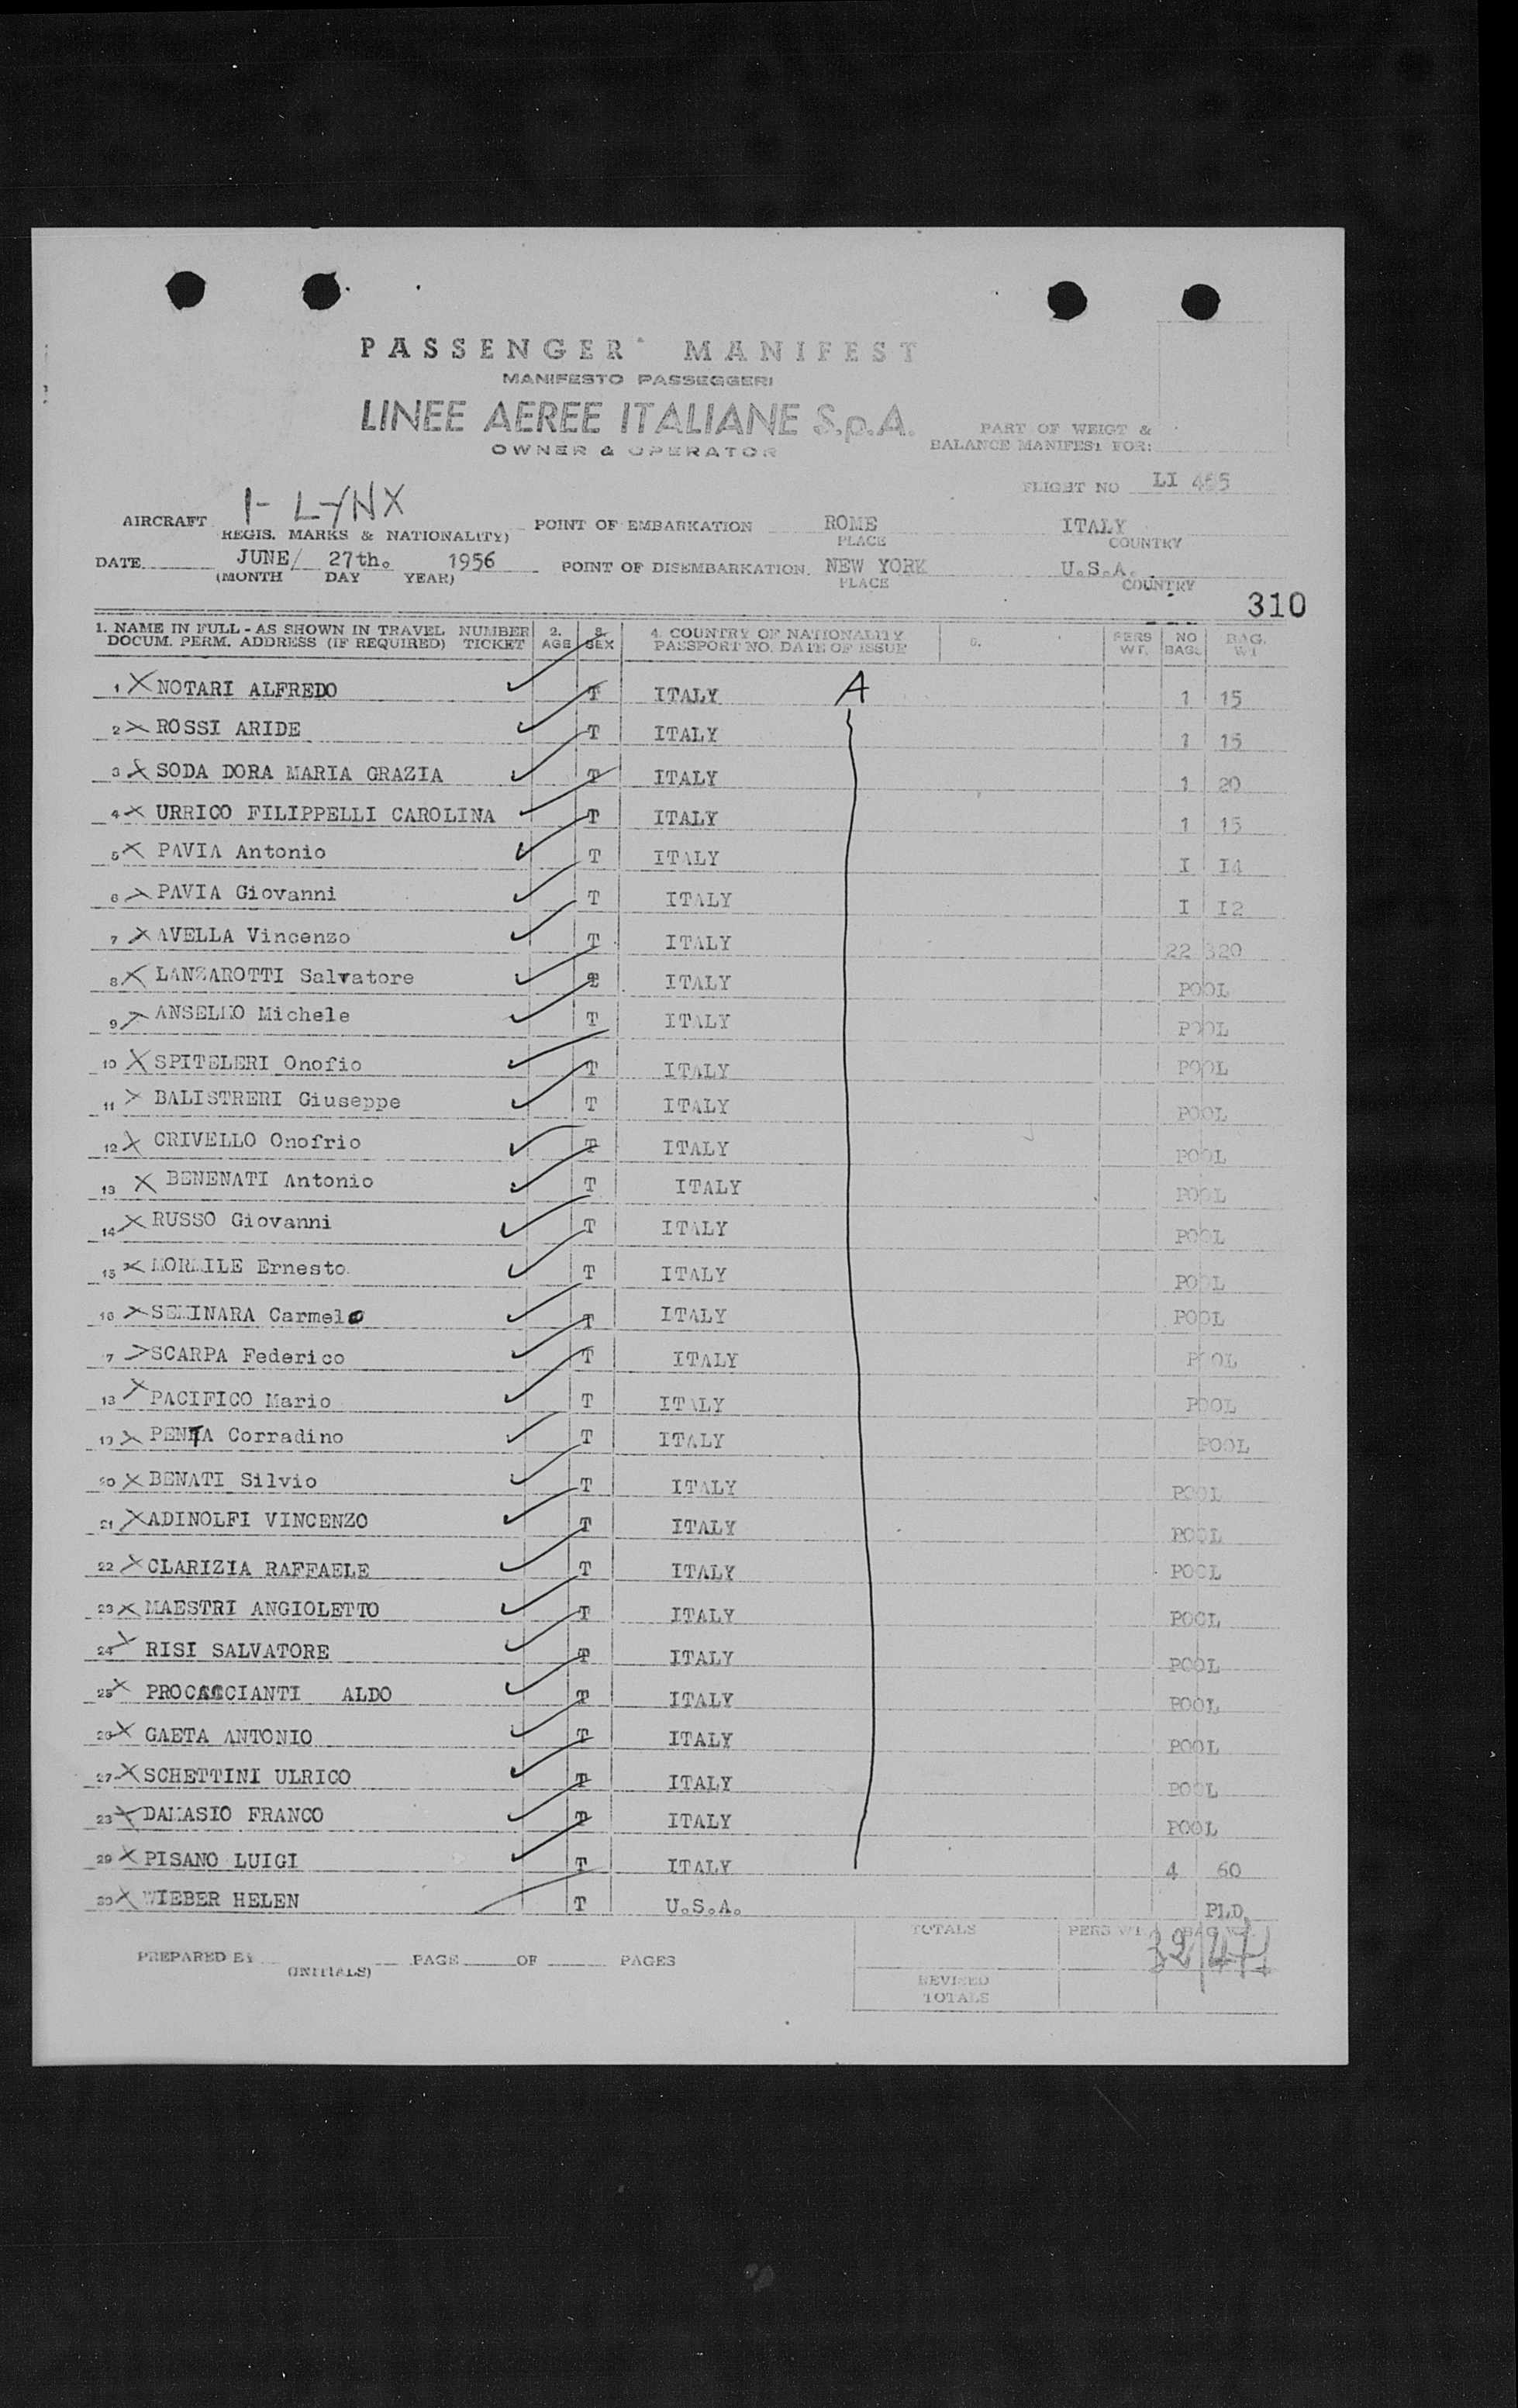 PASSENGER MANIFEST
MANIFESTO PASSEGGERI
LINEE AEREE ITALIANE S.p.A.
OWNER & OPERATOR
PART OF WEIGT &
BALANCE MANIFEST FOR:
FLIGHT NO LI 465
AIRCRAFT I-LYNX POINT OF EMBARKATION ROME ITALY
REGIS. MARKS & NATIONALITY) PLACE COUNTRY
DATE JUNE/ 27th. 1956 POINT OF DISEMBARKATION. NEW YORK U.S.A.
(MONTH DAY YEAR) PLACE COUNTRY
310
1. NAME IN FULL - AS SHOWN IN TRAVEL NUMBER 2. 3. 4. COUNTRY OF NATIONALITY 5. PERS NO BAG.
DOCUM. PERM. ADDRESS (IF REQUIRED) TICKET AGE SEX PASSPORT NO. DATE OF ISSUE WT. BAGS WT
1 X NOTARI ALFREDO T ITALY A 1 15
2 X ROSSI ARIDE T ITALY 1 15
3 X SODA DORA MARIA GRAZIA T ITALY 1 20
4 X URRICO FILIPPELLI CAROLINA T ITALY 1 15
5 X PAVIA Antonio T ITALY I I4
6 X PAVIA Giovanni T ITALY I I2
7 X AVELLA Vincenzo T ITALY 22 320
8 X LANZAROTTI Salvatore T ITALY POOL
9 X ANSELMO Michele T ITALY POOL
10 X SPITELERI Onofio T ITALY POOL
11 X BALISTRERI Giuseppe T ITALY POOL
12 X CRIVELLO Onofrio T ITALY POOL
13 X BENENATI Antonio T ITALY POOL
14 X RUSSO Giovanni T ITALY POOL
15 X MORMILE Ernesto T ITALY POOL
16 X SEMINARA Carmelo T ITALY POOL
17 X SCARPA Federico T ITALY POOL
18 X PACIFICO Mario T ITALY POOL
19 X PENTA Corradino T ITALY POOL
20 X BENATI Silvio T ITALY POOL
21 X ADINOLFI VINCENZO T ITALY POOL
22 X CLARIZIA RAFFAELE T ITALY POOL
23 X MAESTRI ANGIOLETTO T ITALY POOL
24 X RISI SALVATORE T ITALY POOL
25 X PROCACCIANTI ALDO T ITALY POOL
26 X GAETA ANTONIO T ITALY POOL
27 X SCHETTINI ULRICO T ITALY POOL
28 X DAMASIO FRANCO T ITALY POOL
29 X PISANO LUIGI T ITALY 4 60
30 X WIEBER HELEN T U.S.A. PLD.
TOTALS PERS WT. BAG WT.
PREPARED BY PAGE OF PAGES
(INITIALS)
REVISED
TOTALS